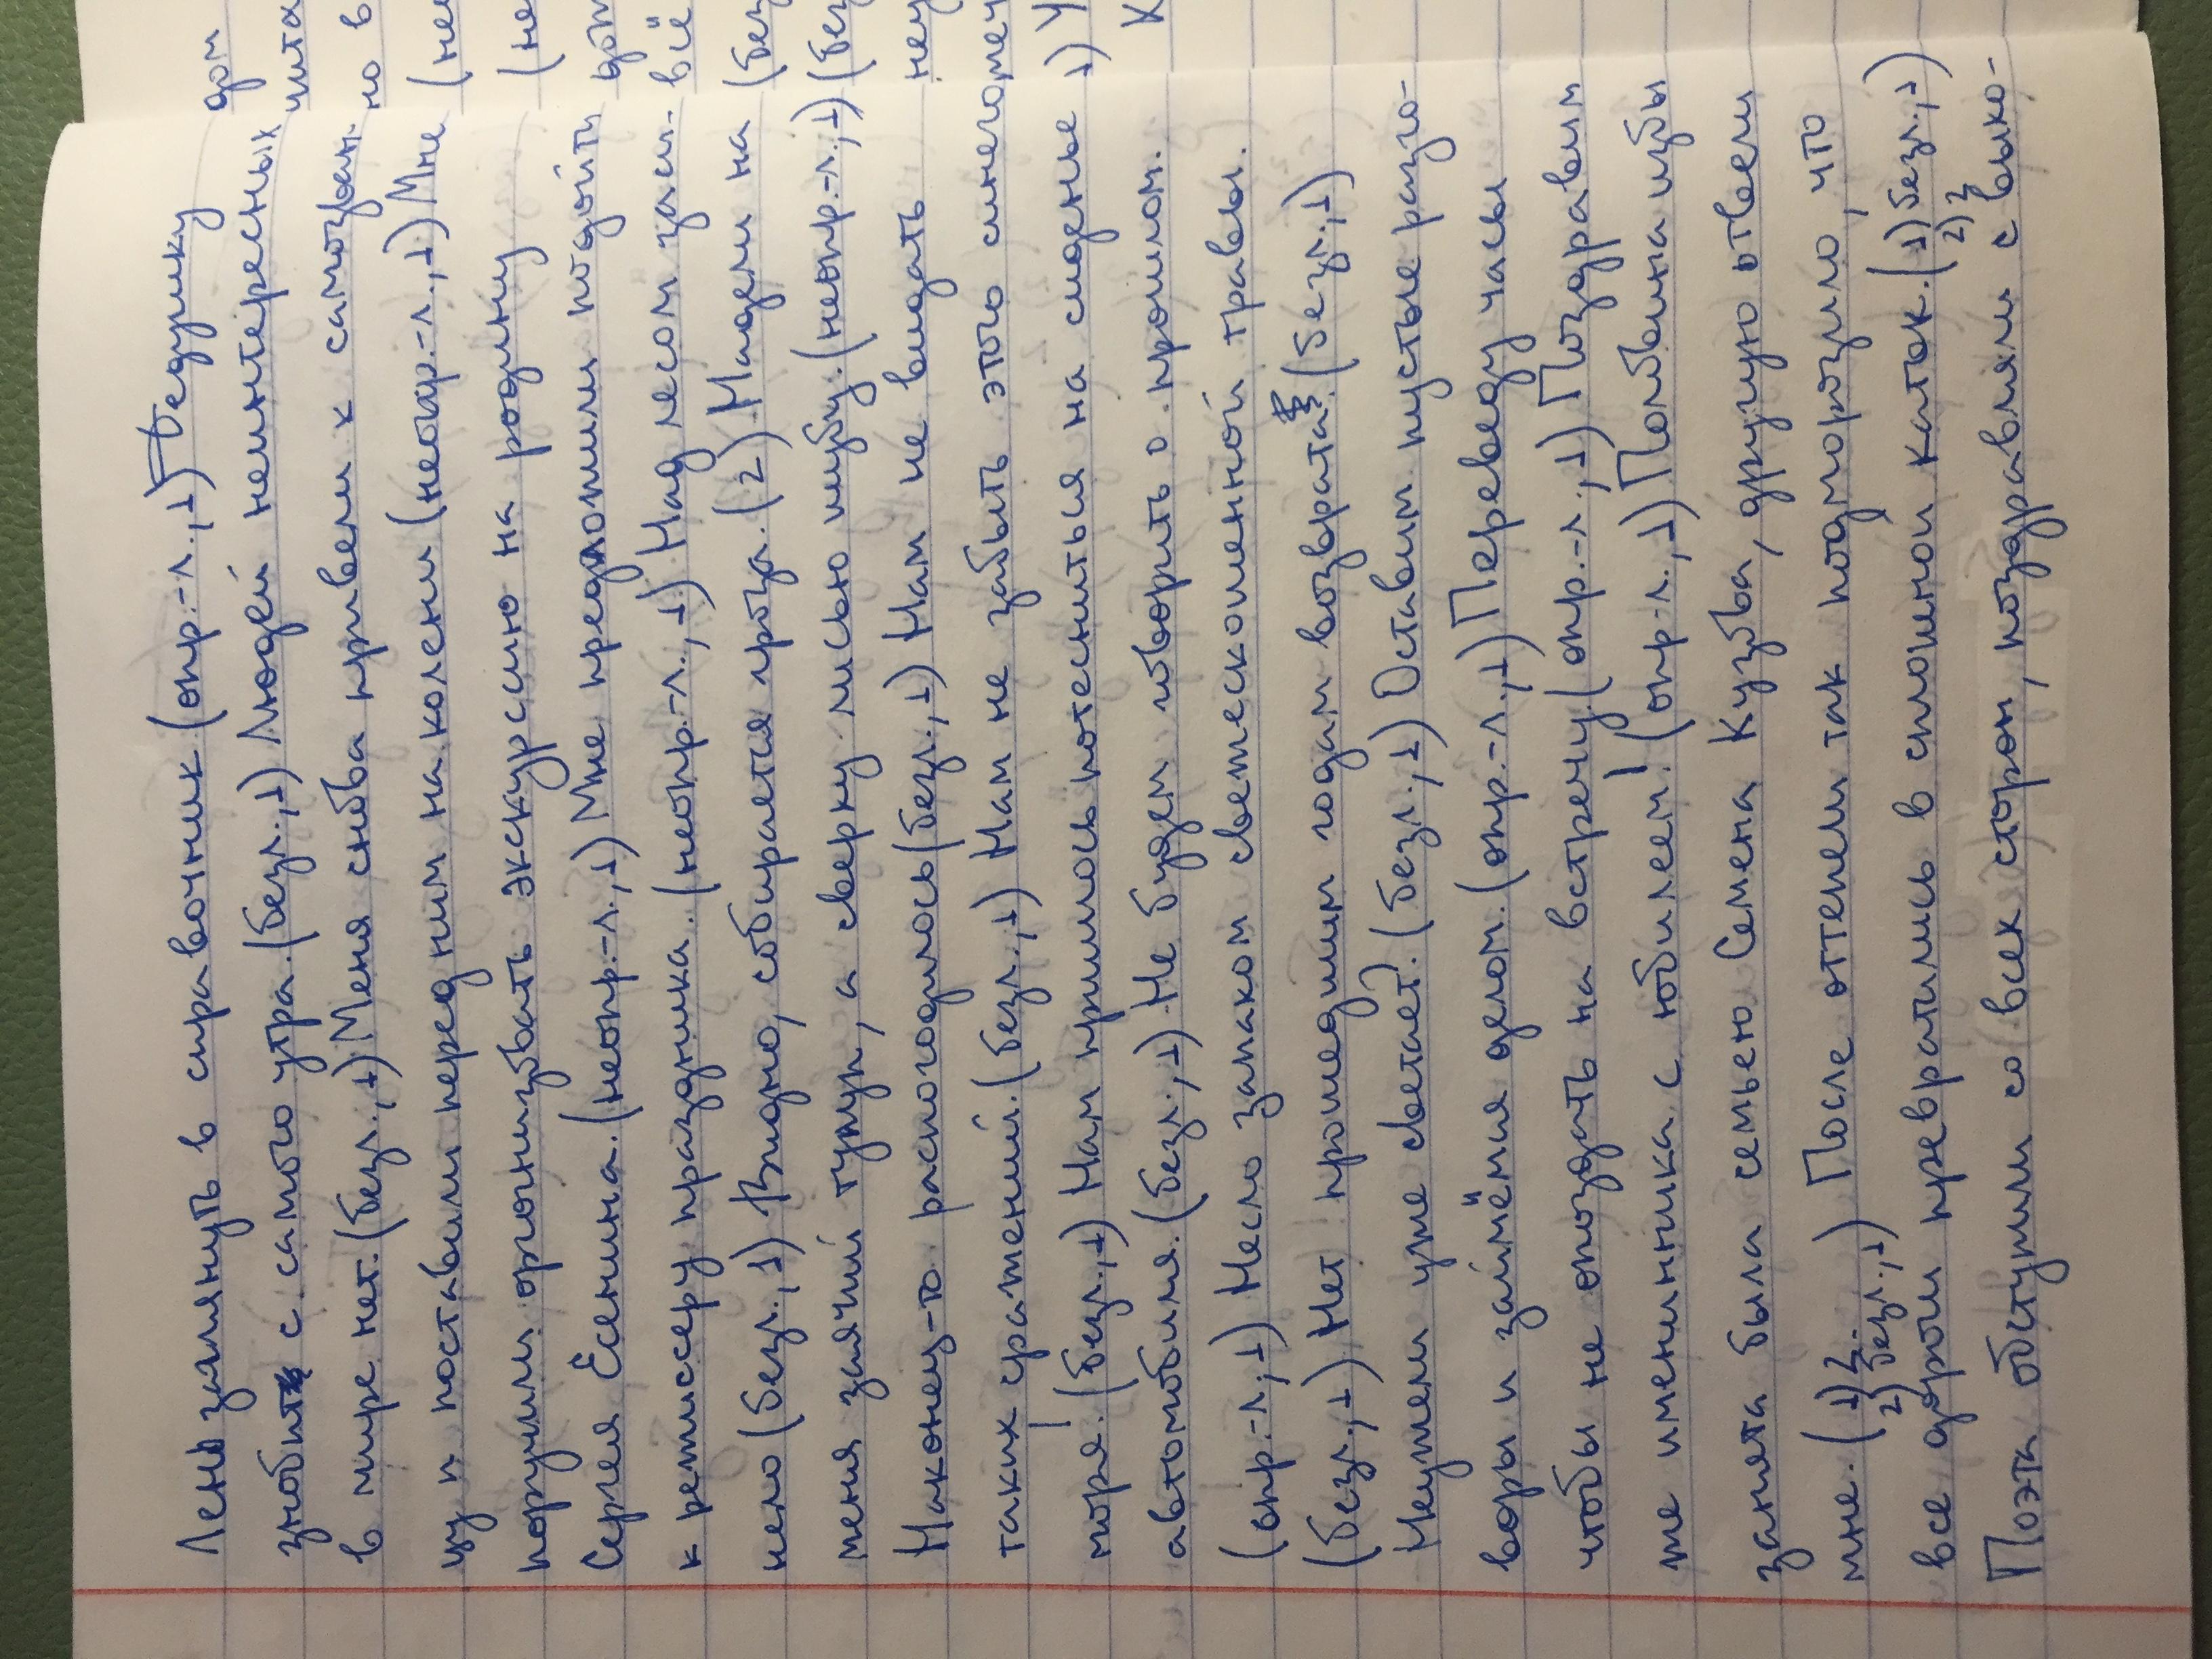 Лень заглянуть в справочник (опр.-л., 1) Бедняжку
знобит с самого утра. (безл., 1) Людей неинтересных
в мире нет. (безл., 1) Меня снова привели к самозван-
цу и поставили перед ним на колени (неопр.-л., 1) Мне
поручили организовать экскурсию на родину
Сергея Есенина. (неопр.-л., 1) Мне предложили подойти
к режиссеру праздника. (неопр.-л., 1) Над лесом заси-
нело (безл., 1) Видно, собирается гроза. (2) Надели на
меня заячий тулуп, а сверху лисью шубу. (неопр.-л., 1)
Наконец-то распогодилось (безл., 1) Нам не видать
таких сражений. (безл., 1) Нам не забыть этого синего
моря. (безл., 1) Нам пришлось потесниться на сиденье
автомобиля. (безл., 1) Не будем говорить о прошлом.
(опр.-л., 1) Несло запахом свежескошенной травы.
(безл., 1) Нет прошедшим годам возврата. (безл., 1)
Неужели уже светает? (безл., 1) Оставим пустые разго-
воры и займёмся делом. (опр.-л., 1) Переведу часы
чтобы не опоздать на встречу. (опр.-л., 1) Поздравим
же именинника с юбилеем! (опр-л., 1) Половина избы
занята была семьею Семена Кузова, другую отвели
мне. (1) 2 2) безл., 1) После оттепели так подморозило, что
все дороги превратились в сплошной каток. (1) безл., 1) 2) 2
Поэта обступили со всех сторон, поздравляли с выхо-
дом
чита
но в
(не
(не
дом
всё
(без
(без
не
меч
1) У
К